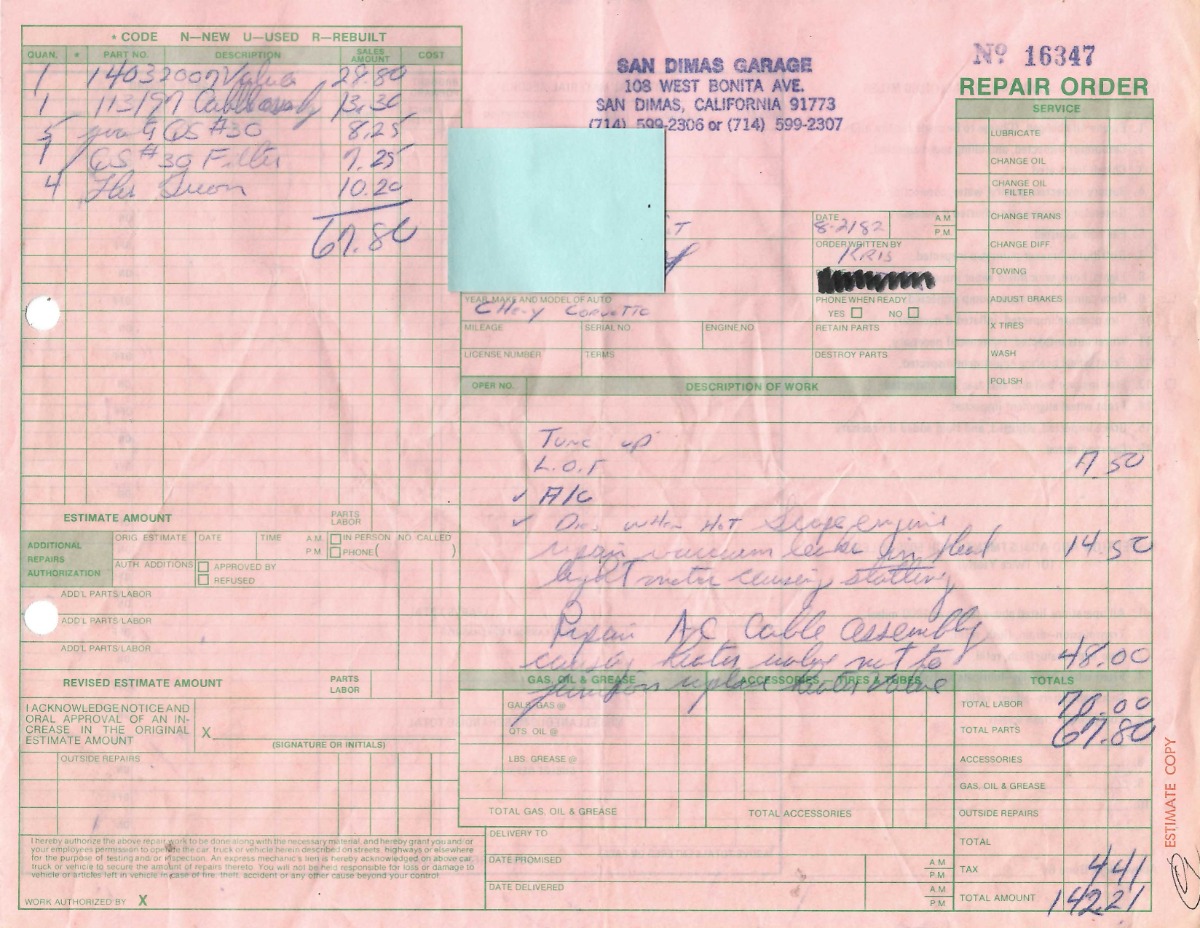 * CODE N—NEW U—USED R—REBUILT
QUAN. * PART NO. DESCRIPTION SALES AMOUNT COST
1 14032007 Valve 28.80
1 113197 Cable assembly 13.30
5 GS #30 8.25
1 GS #30 Filter 7.25
4 Lbs Freon 10.20
67.80
SAN DIMAS GARAGE
108 WEST BONITA AVE.
SAN DIMAS, CALIFORNIA 91773
(714) 599-2306 or (714) 599-2307
Nº 16347
REPAIR ORDER
SERVICE
LUBRICATE
CHANGE OIL
CHANGE OIL FILTER
CHANGE TRANS.
CHANGE DIFF.
TOWING
ADJUST BRAKES
X TIRES
WASH
POLISH
DATE 8-2/82 A M P M
ORDER WRITTEN BY
KRIS
PHONE WHEN READY
YES NO
YEAR, MAKE AND MODEL OF AUTO
Chevy Corvette
MILEAGE SERIAL NO. ENGINE NO. RETAIN PARTS
LICENSE NUMBER TERMS DESTROY PARTS
OPER NO. DESCRIPTION OF WORK
Tune up
L.O.F 7.50
✓ A/C
✓ Dies when Hot Scope engine
repair vacuum leak in Head 14.50
light motor causing stalling
Repair AC Cable assembly
causing heater valve not to 48.00
function replace heater valve
ESTIMATE AMOUNT PARTS LABOR
ADDITIONAL REPAIRS AUTHORIZATION
ORIG. ESTIMATE DATE TIME A.M. P.M. IN PERSON NO. CALLED PHONE ( )
AUTH ADDITIONS APPROVED BY
REFUSED
ADD'L PARTS/LABOR
ADD'L PARTS/LABOR
ADD'L PARTS/LABOR
REVISED ESTIMATE AMOUNT PARTS LABOR
I ACKNOWLEDGE NOTICE AND
ORAL APPROVAL OF AN IN-
CREASE IN THE ORIGINAL
ESTIMATE AMOUNT
X
(SIGNATURE OR INITIALS)
OUTSIDE REPAIRS
GAS, OIL & GREASE ACCESSORIES TIRES & TUBES TOTALS
GALS. GAS @
QTS. OIL @
LBS. GREASE @
TOTAL GAS, OIL & GREASE TOTAL ACCESSORIES
TOTAL LABOR 70.00
TOTAL PARTS 67.80
ACCESSORIES
GAS, OIL & GREASE
OUTSIDE REPAIRS
TOTAL
TAX 4.41
TOTAL AMOUNT 142.21
DELIVERY TO
DATE PROMISED A M P M
DATE DELIVERED A M P M
I hereby authorize the above repair work to be done along with the necessary material, and hereby grant you and/or
your employees permission to operate the car, truck or vehicle herein described on streets, highways or elsewhere
for the purpose of testing and/or inspection. An express mechanic's lien is hereby acknowledged on above car,
truck or vehicle to secure the amount of repairs thereto. You will not be held responsible for loss or damage to
vehicle or articles left in vehicle in case of fire, theft, accident or any other cause beyond your control.
WORK AUTHORIZED BY X
ESTIMATE COPY